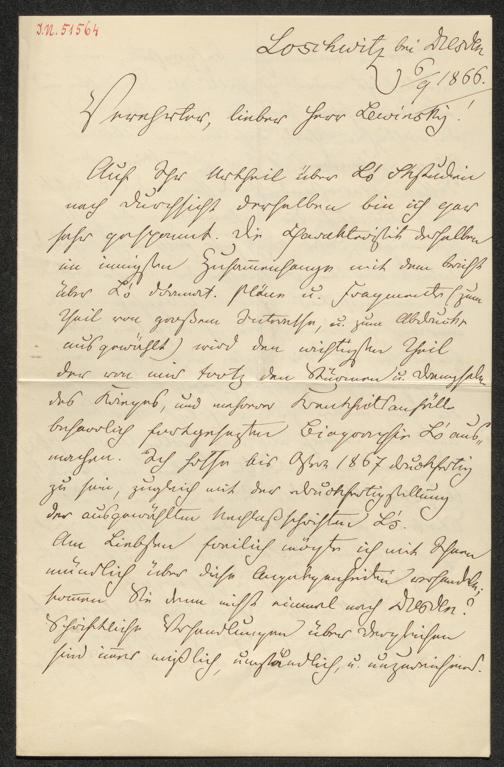 I.N. 51564
Loschwitz bei Dresden
6/9 1866.
Verehrter, lieber Herr Lewinsky!
Auf Ihr Urtheil über L's Shstudien
nach Durchsicht derselben bin ich gar
sehr gespannt. Die Charakteristik derselben
im innigsten Zusammenhange mit dem Bericht
über L's dramat. Pläne u. Fragmente (zum
Theil von großem Interesse, u. zum Abdrucke
ausgewählt) wird den wichtigsten Theil
der von mir trotz den Stürmen u Drangsalen
des Krieges, und mehrerer Krankheitsanfälle
beharrlich fortgesetzten Biographie L's aus-
machen. Ich hoffe bis Ostern 1867 druckfertig
zu sein, zugleich mit der Druckfertigstellung
der ausgewählten Nachlaßschriften L's.
Am Liebsten freilich möchte ich mit Ihnen
mündlich über diese Angelegenheiten verhandeln;
kommen Sie denn nicht einmal nach Dresden?
Schriftliche Verhandlungen über dergleichen
sind immer mißlich, umständlich, u. unzureichend.